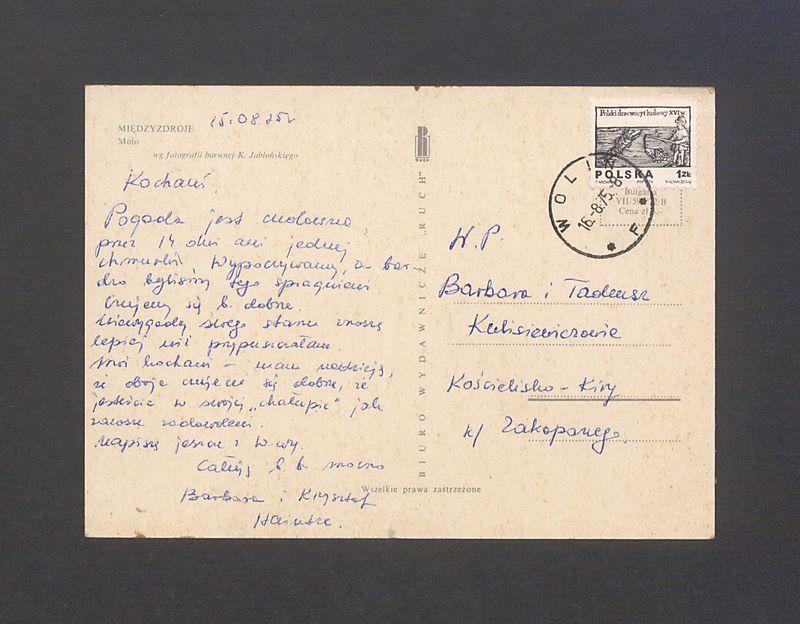 MIĘDZYZDROJE
Molo
wg fotografii barwnej K. Jabłońskiego
15.08.75r
Kochani.
Pogoda jest cudowna,
przez 14 dni ani jednej
chmurki. Wypoczywamy, a bar-
dzo byliśmy tego spragnieni
Czujemy się b. dobrze.
Niewygody swego stanu znoszę
lepiej niż przypuszczałam
Moi kochani – mam nadzieję,
że oboje czujecie się dobrze, że
jesteście w swojej „chałupie” jak
zawsze zadowoleni.
Napiszę jeszcze z W-wy.
Całuję b. b. mocno
Barbara i Krzysztof
BIURO WYDAWNICZE „RUCH”
Wszelkie prawa zastrzeżone
Polski drzeworyt ludowy XVI w
POLSKA 1zł
WOLIN
16.-8.75.-8
* F *
Bułgaria
Cena zł
W.P.
Barbara i Tadeusz
Kulisiewiczowie
Kościelisko – Kiry
k/ Zakopanego.